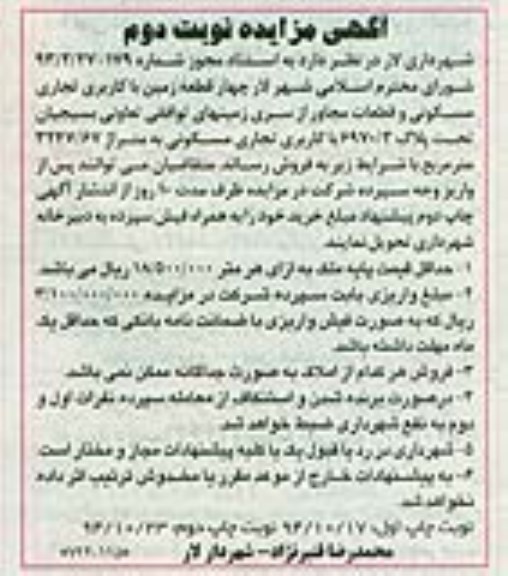 آگهی مزایده نوبت دوم
شهرداری لار در نظر دارد به استناد مجوز شماره ۹۳/۲/۲۷-۱۷۹
شورای محترم اسلامی شهر لار چهار قطعه زمین با کاربری تجاری
مسکونی و قطعات مجاور از سری زمینهای توافقی تعاونی بسیجیان
تحت پلاک ۶۹۷۰/۳ با کاربری تجاری مسکونی به متراژ ۳۲۴۷/۶۷
مترمربع با شرایط زیر به فروش رساند. متقاضیان می توانند پس از
واریز وجه سپرده شرکت در مزایده ظرف مدت ۱۰ روز از انتشار آگهی
چاپ دوم پیشنهاد مبلغ خرید خود را به همراه فیش سپرده به دبیرخانه
شهرداری تحویل نمایند.
۱- حداقل قیمت پایه ملک به ازای هر متر ۱۸/۵۰۰/۰۰۰ ریال می باشد.
۲- مبلغ واریزی بابت سپرده شرکت در مزایده ۳/۱۰۰/۰۰۰/۰۰۰
ریال که به صورت فیش واریزی یا ضمانت نامه بانکی که حداقل یک
ماه مهلت داشته باشد.
۳- فروش هر کدام از املاک به صورت جداگانه ممکن نمی باشد.
۴- درصورت برنده شدن و استنکاف از معامله سپرده نفرات اول و
دوم به نفع شهرداری ضبط خواهد شد.
۵- شهرداری در رد یا قبول یک یا کلیه پیشنهادات مجاز و مختار است.
۶- به پیشنهادات خارج از موعد مقرر یا مخدوش ترتیب اثر داده
نخواهد شد.
نوبت چاپ اول: ۹۴/۱۰/۱۷ نوبت چاپ دوم: ۹۴/۱۰/۲۳
محمدرضا قنبرنژاد- شهردار لار